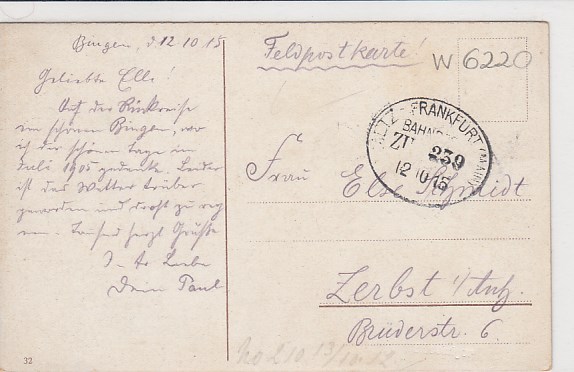 Bingen, d. 12 10 15
Geliebte Else!
Auf der Rückreise
im schönen Bingen, wo
ich der schönen Tage im
Juli 1905 gedenke. Leider
ist das Wetter trüber
geworden und droht zu reg
nen. Tausend herzl. Grüße
I. tr. Liebe
Dein Paul
32
Feldpostkarte!
W 6220
FRANKFURT (MAIN)
BAHNPOST
ZUG 239
12 10 15
Frau Else Schmidt
Zerbst i/Anh.
Brüderstr. 6.